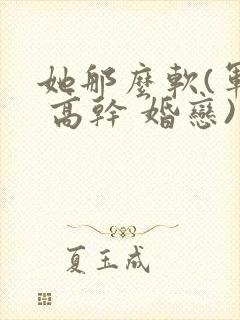 她那麼軟(軍
高幹 婚戀)
夏玉成